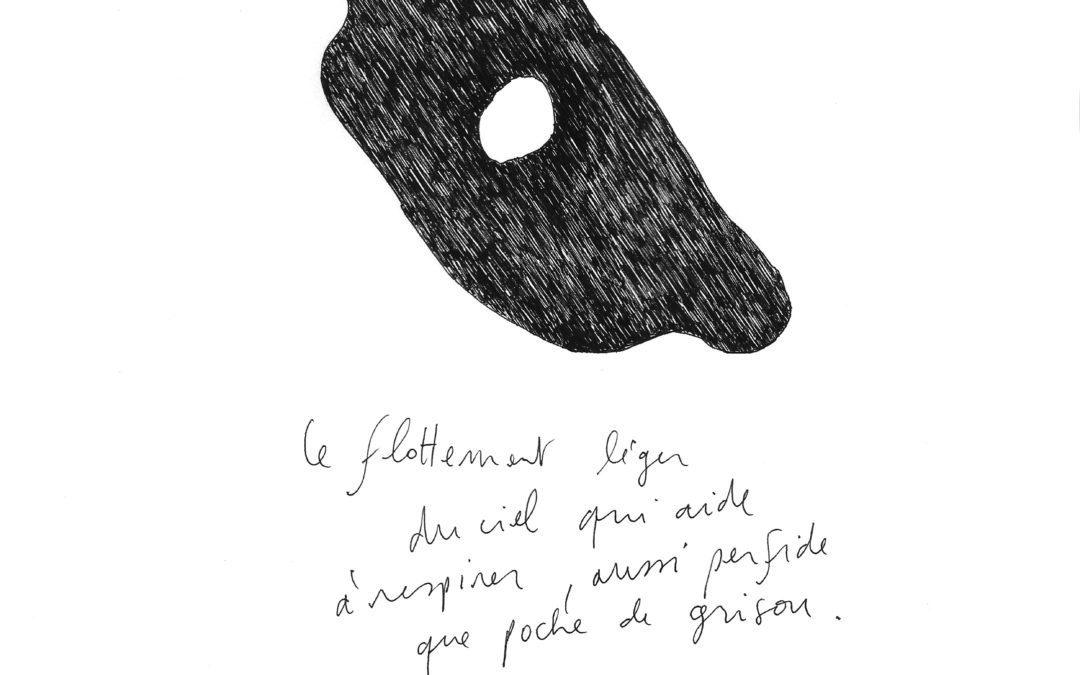 le flottement léger
du ciel qui aide
à respirer, aussi perfide
que poche de grisou.